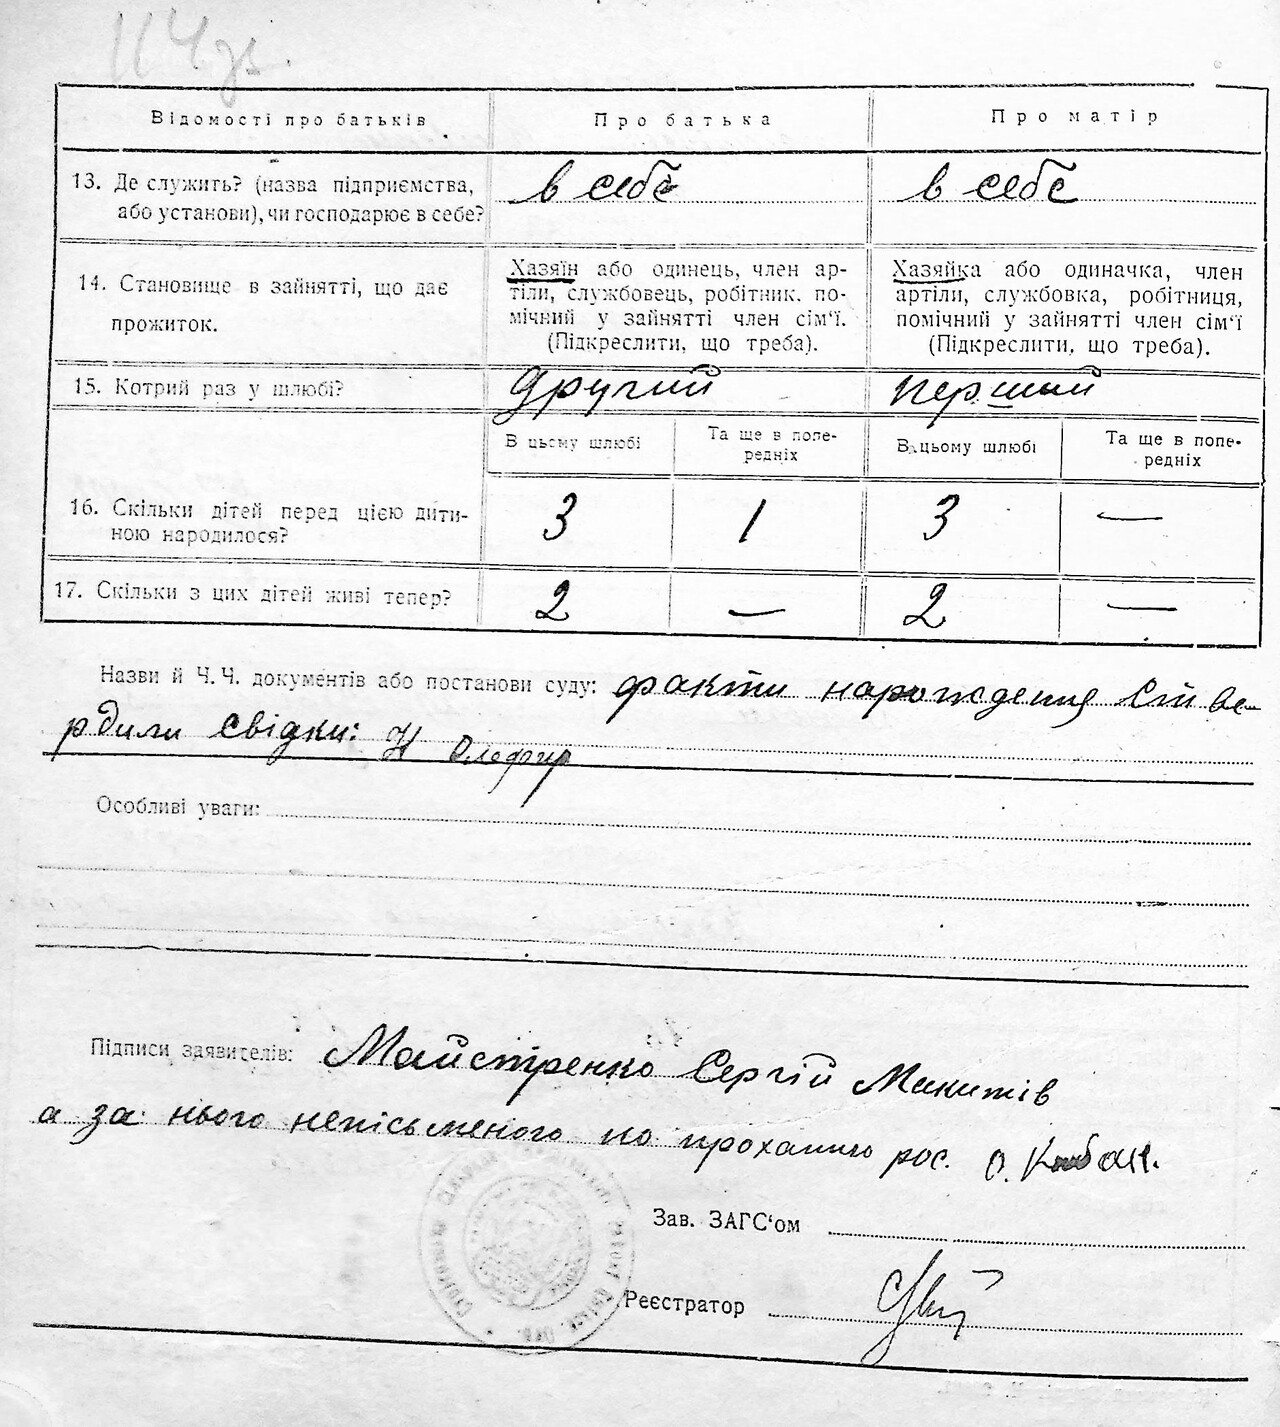 114 зв.
Відомості про батьків
Про батька
Про матір
13. Де служить? (назва підприємства,
або установи), чи господарює в себе?
в себе
в себе
14. Становище в зайнятті, що дає
прожиток.
Хазяїн або одинець, член ар-
тіли, службовець, робітник. по-
мічний у зайнятті член сім'ї.
(Підкреслити, що треба).
Хазяйка або одиначка, член
артіли, службовка, робітниця,
помічний у зайнятті член сім'ї
(Підкреслити, що треба).
15. Котрий раз у шлюбі?
другий
перший
В цьому шлюбі
Та ще в попе-
редніх
В цьому шлюбі
Та ще в попе-
редніх
16. Скільки дітей перед цією дити-
ною народилося?
3
1
3
—
17. Скільки з цих дітей живі тепер?
2
—
2
—
Назви й Ч.Ч. документів або постанови суду: факти нарождения стве-
рдили свідки: Олефир
Особливі уваги:
Підписи здявителів: Майстренко Сергій Микитів
а за нього непісьменого по проханню рос. О.
Зав. ЗАГС'ом
Реєстратор